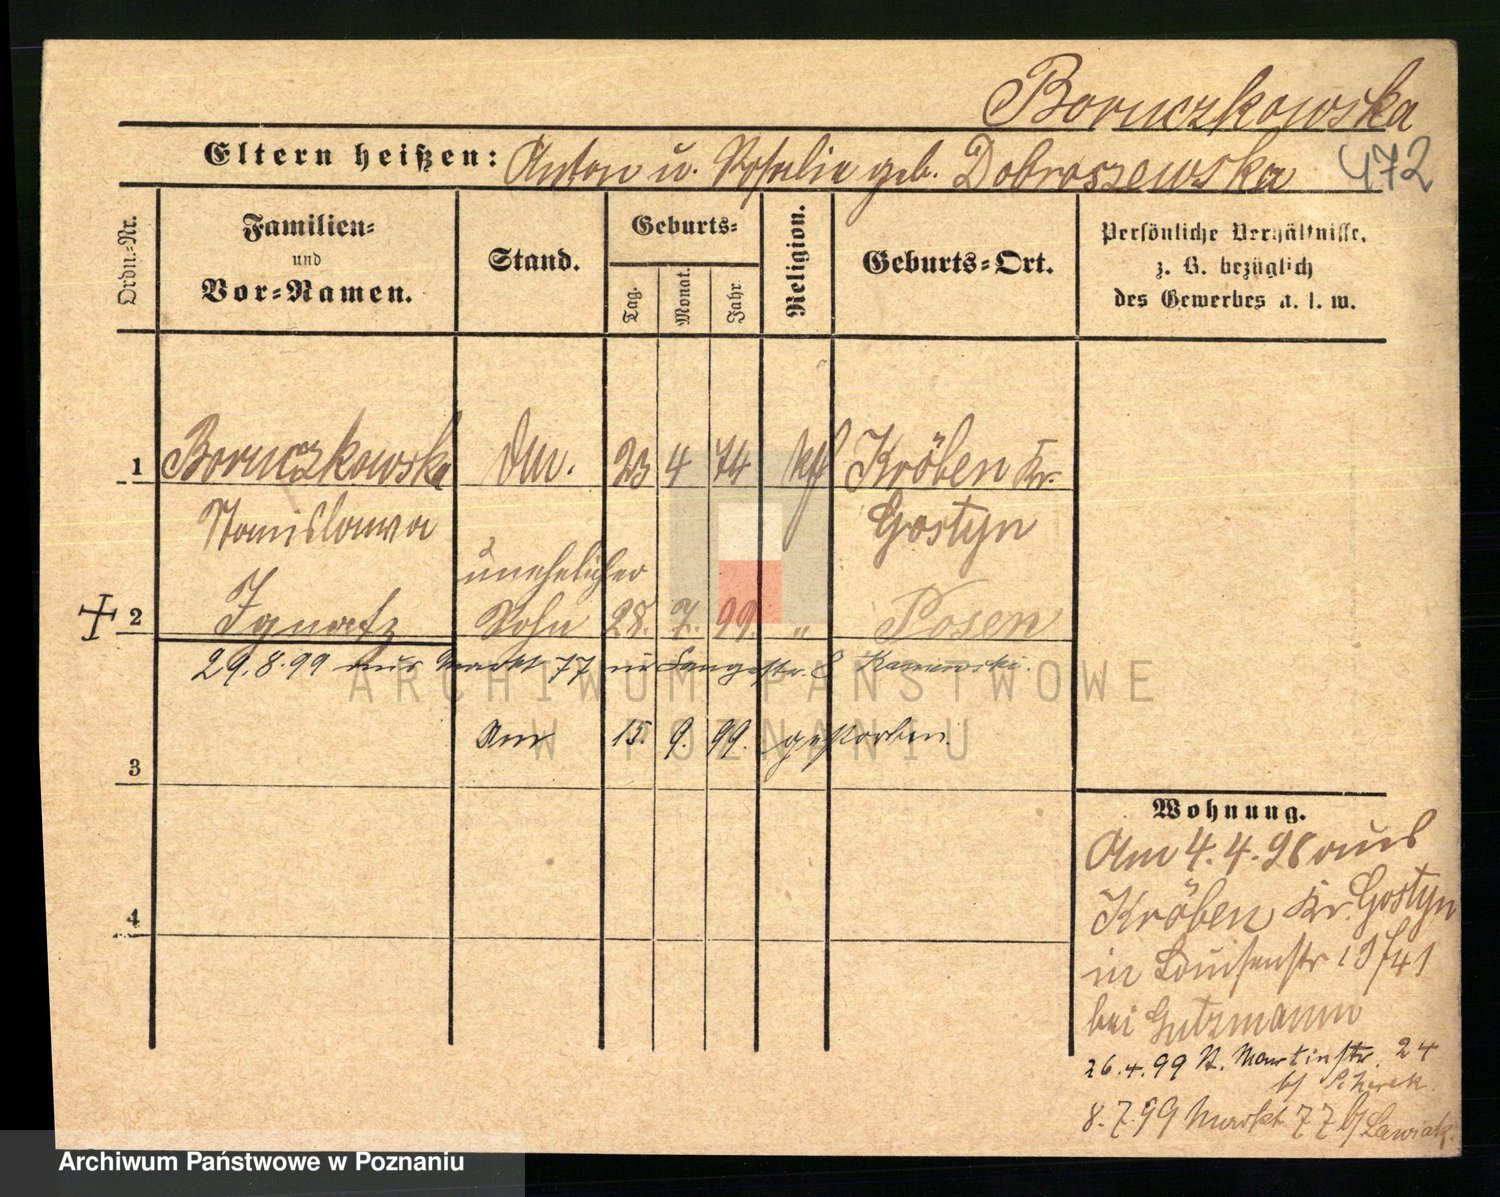 Boruczkowska
Eltern heißen: Anton u. Rosalie geb. Dobroszewska 472
Ordn.-Nr.
Familien-
und
Vor-Namen.
Stand.
Geburts-
Tag.
Monat.
Jahr
Religion.
Geburts-Ort.
Persönliche Verhältnisse,
z. B. bezüglich
des Gewerbes u. s. w.
1 Boruczkowska 23 4 74 Kröben Kr.
Stanislawa Gostyn
unehelicher
2 Ignatz Sohn 28. 7. 99. " Posen
29.8.99 aus Markt 77 in Langestr. 8
Am 15. 9. 99. gestorben.
3
4
Wohnung.
Am 4.4.98 aus
Kröben Kr. Gostyn
in Louisenstr 19/41
bei Gutzmann
26.4.99 St. Martinstr. 24
b/
8.7.99 Markt 77 b/ Lawiak
ARCHIWUM PAŃSTWOWE
W POZNANIU
Archiwum Państwowe w Poznaniu